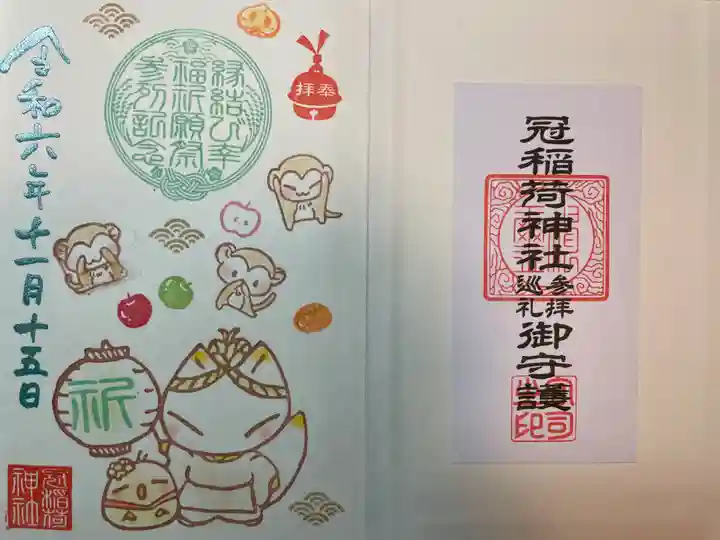 令和六年十一月十五日
縁結び幸
福祈願祭
参列記念
奉拝
祈
冠稲荷
神社
冠稲荷神社参拝
巡礼御守護
宮司
印